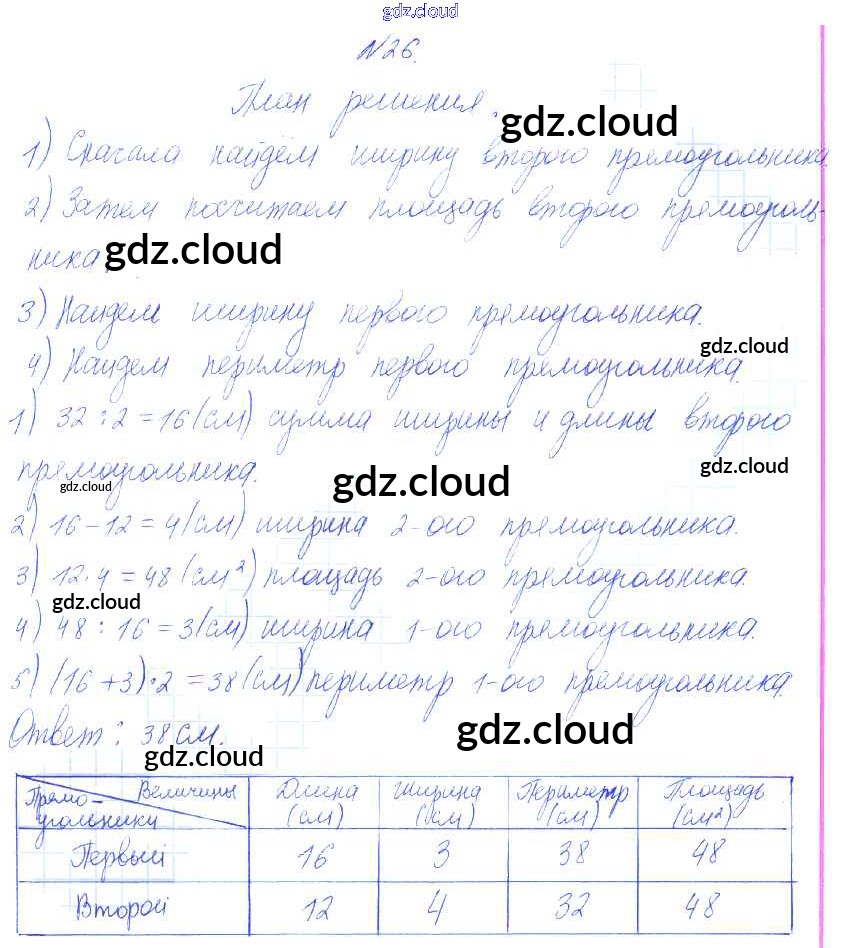 gdz.cloud
№26.
План решения.
gdz.cloud
1) Сначала найдём ширину второго прямоугольника.
2) Затем посчитаем площадь второго прямоуголь-
ника.
gdz.cloud
3) Найдем ширину первого прямоугольника.
gdz.cloud
4) Найдем периметр первого прямоугольника.
1) 32 : 2 = 16 (см) сумма ширины и длины второго
прямоугольника.
gdz.cloud
gdz.cloud
gdz.cloud
2) 16 - 12 = 4 (см) ширина 2-ого прямоугольника.
3) 12 · 4 = 48 (см²) площадь 2-ого прямоугольника.
gdz.cloud
4) 48 : 16 = 3 (см) ширина 1-ого прямоугольника.
5) (16 + 3) · 2 = 38 (см) периметр 1-ого прямоугольника.
Ответ: 38 см.
gdz.cloud
gdz.cloud
Прямо- Величины Длина Ширина Периметр Площадь
угольники (см) (см) (см) (см²)
Первый 16 3 38 48
Второй 12 4 32 48